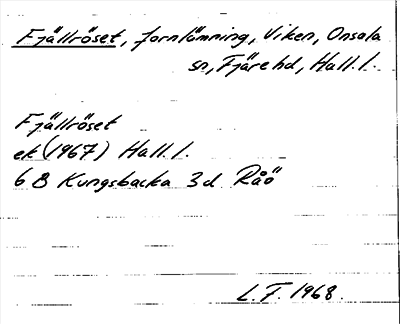 Fjällröset, fornlämning, Viken, Onsala
sn, Fjäre hd, Hall. l.
Fjällröset
ek (1967) Hall. l.
6 B Kungsbacka 3d Råö
L. F. 1968.